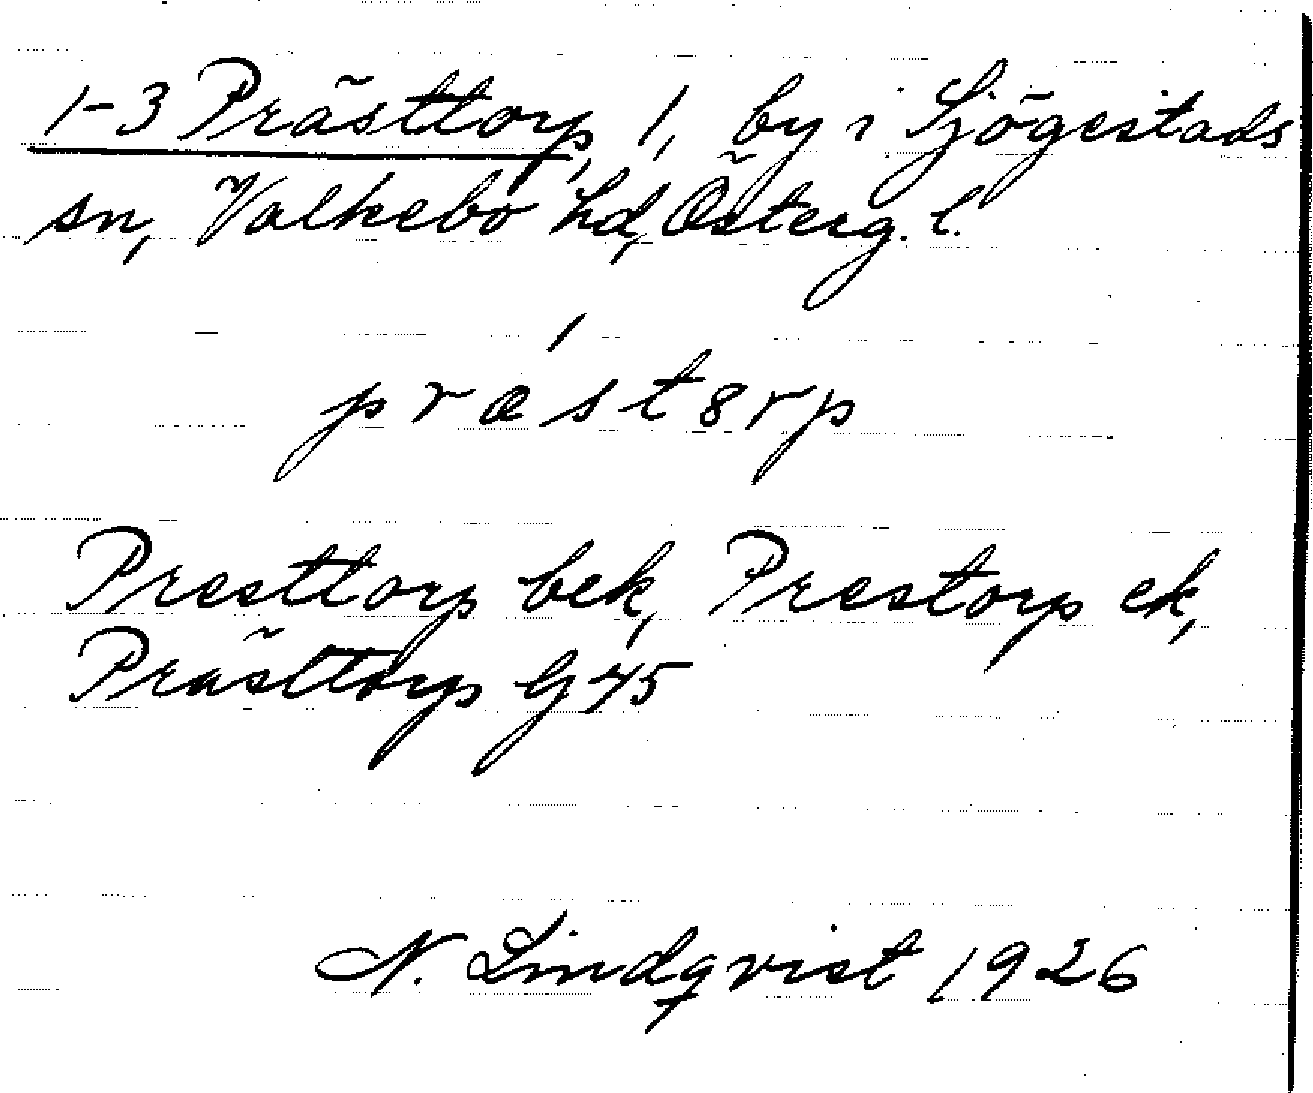 1-3 Prästtorp, 1, by i Sjögestads
sn, Valkebo hd, Österg. l.
præ´st8rp
Presttorp bek, Prestorp ek,
Prästtorp G 45
N. Lindqvist 1926